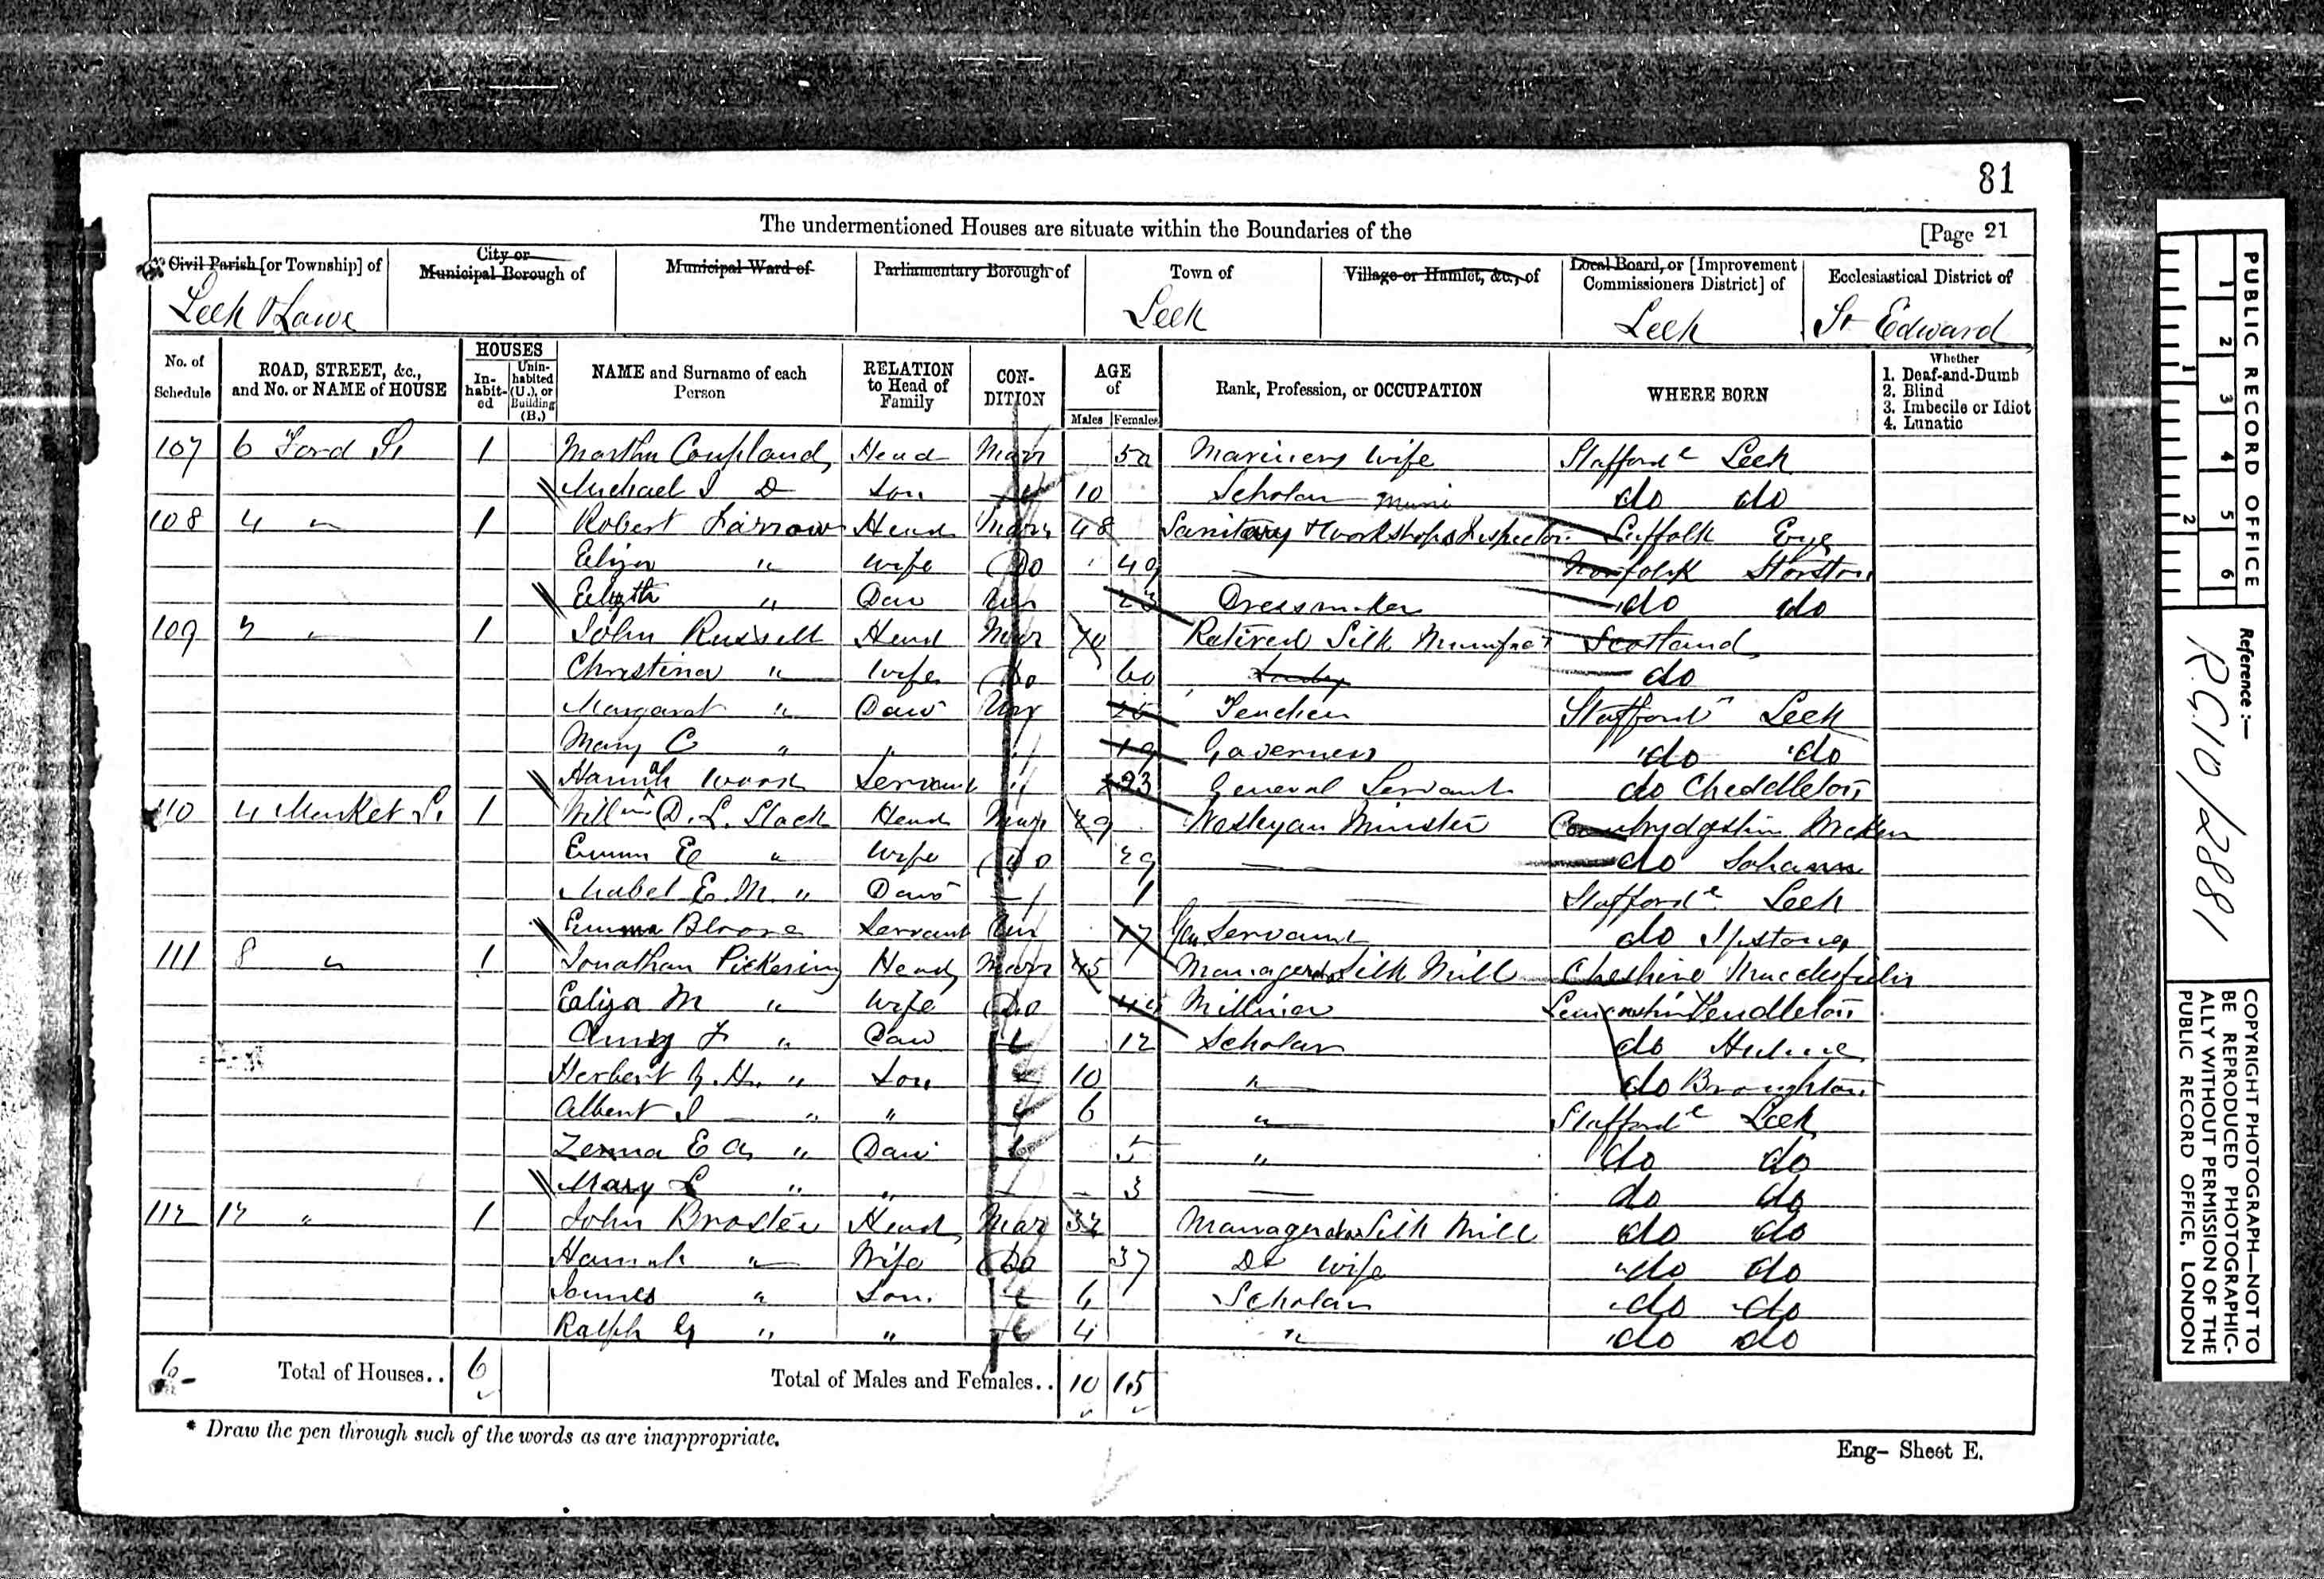 81
The undermentioned Houses are situate within the Boundaries of the [Page 21
Civil Parish [or Township] of
City or Municipal Borough of
Municipal Ward of
Parliamentary Borough of
Town of
Village or Hamlet, &c., of
Local Board, or [Improvement Commissioners District] of
Ecclesiastical District of
Leek & Lowe Leek Leek St Edward
No. of Schedule
ROAD, STREET, &c., and No. or NAME of HOUSE
HOUSES
In-habit-ed
Unin-habited (U.), or Building (B.)
NAME and Surname of each Person
RELATION to Head of Family
CON-DITION
AGE of
Males Females
Rank, Profession, or OCCUPATION
WHERE BORN
Whether
1. Deaf-and-Dumb
2. Blind
3. Imbecile or Idiot
4. Lunatic
107 6 Ford St 1 Martha Coupland Head Marr 50 Mariners Wife Stafford Leek
Michael Son 10 Scholar do do
108 4 " 1 Robert Farrow Head Marr 48 Sanitary & Workshops Inspector Suffolk Eye
Eliza " Wife Do 49 Norfolk
" Dau Un 23 Dressmaker do do
109 " 1 John Russell Head Mar 70 Retired Silk Manufac Scotland
Christina " Wife Do 60 do
Margaret " Daur Un Teacher Stafford Leek
Mary C " " " 19 Governess do do
Hannah Wood Servant " 23 General Servant do Cheddleton
110 4 Market St 1 Willm D. L. Slack Head Mar 29 Wesleyan Minister
Emma E " Wife Do 29 do Soham
Mabel E. M. " Daur 1 Stafford Leek
Emma Bloore Servant Un 17 Gen Servant do Ipstones
111 8 " 1 Jonathan Pickering Head Marr 45 Manager Silk Mill Cheshire Macclesfield
Eliza M " Wife Do 44 Milliner Pendleton
F " Dau 12 Scholar do Hulme
Herbert H. " Son 10 " do Broughton
Albert " " 6 " Stafford Leek
E A " Daur 5 " do do
Mary L " " 3 do do
112 12 " 1 John Broster Head Mar 32 Manager Silk Mill do do
Hannah " Wife Do 37 Do Wife do do
James " Son 6 Scholar do do
Ralph G " " 4 " do do
6 Total of Houses.. 6 Total of Males and Females.. 10 15
* Draw the pen through such of the words as are inappropriate.
Eng- Sheet E.
PUBLIC RECORD OFFICE
1 2 3 4 5 6
1 2
Reference:-
R.G. 10/2881
COPYRIGHT PHOTOGRAPH—NOT TO
BE REPRODUCED PHOTOGRAPHIC-
ALLY WITHOUT PERMISSION OF THE
PUBLIC RECORD OFFICE, LONDON